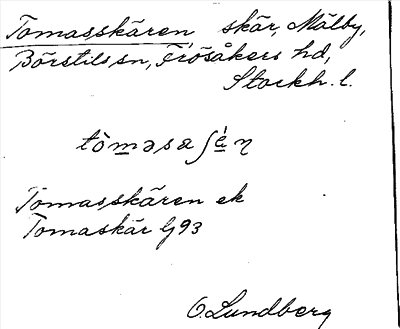 Tomasskären, skär, Mälby,
Börstils sn, Frösåkers hd,
Stockh. l.
tòməsaʃé̱ṇ
Tomasskären ek
Tomaskär Lj 93
O. Lundberg